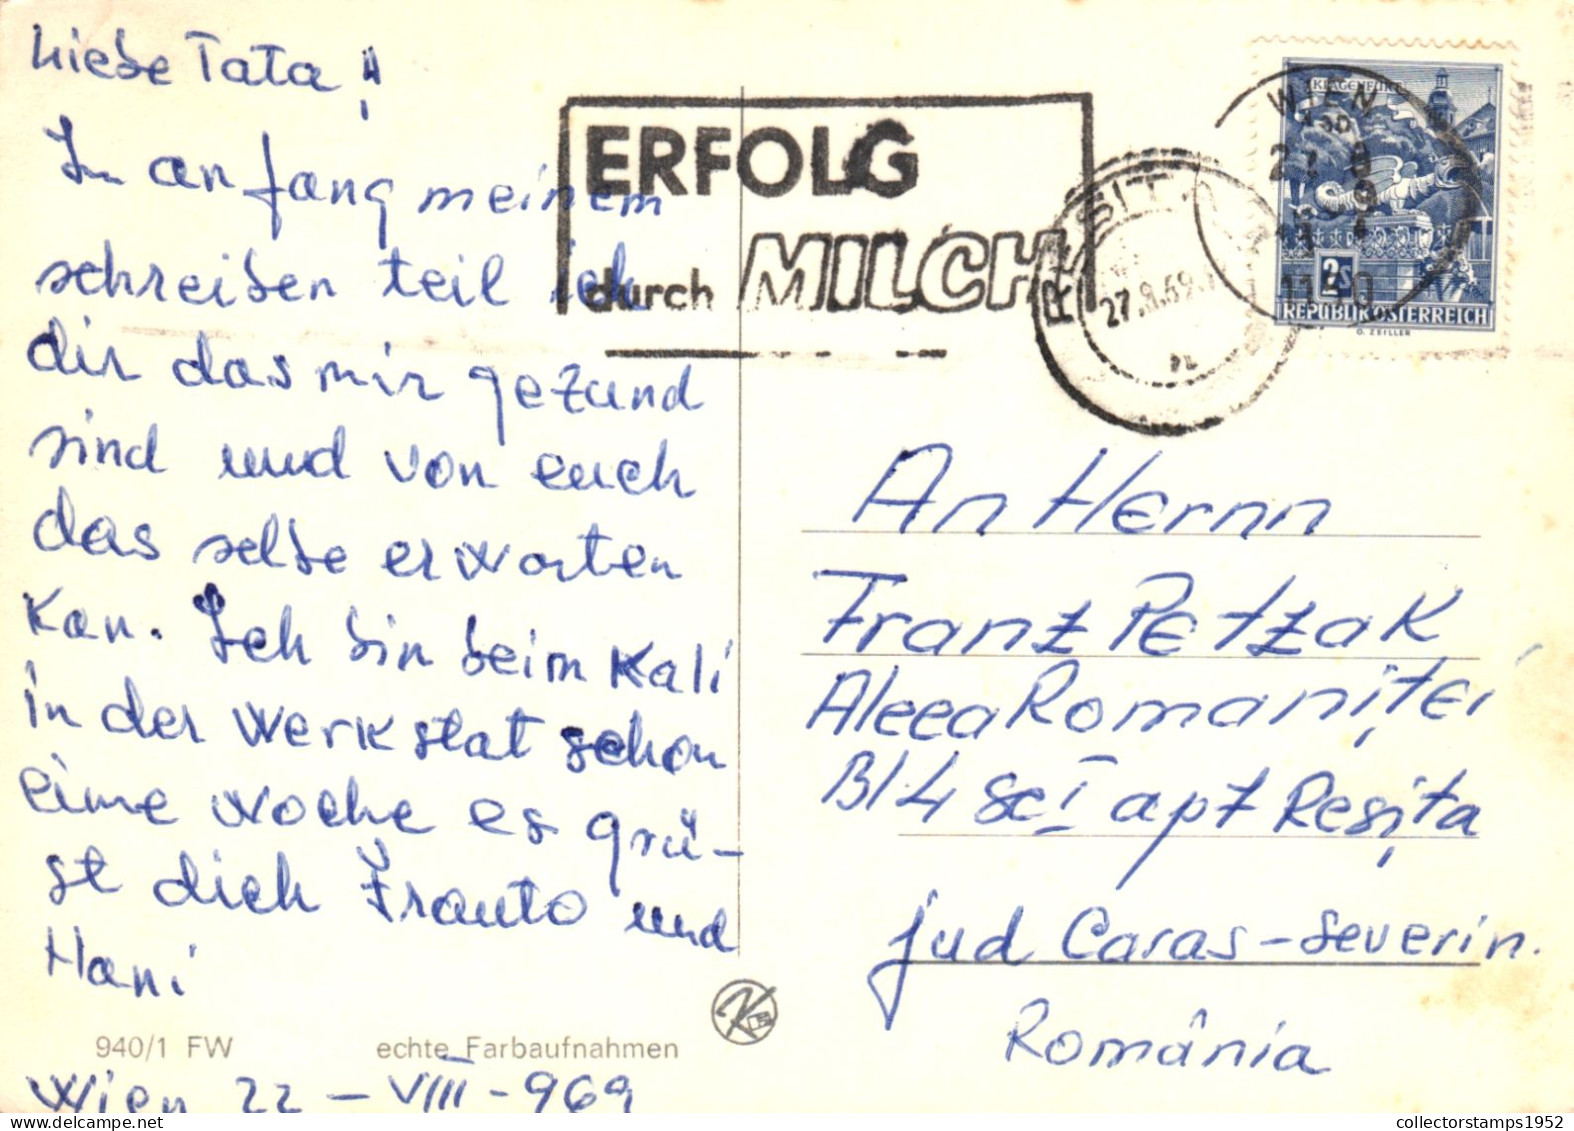 Liebe Tata!
In anfang meinem
schreiben teil ich
dir das mir gezund
sind und von euch
das selbe erwarten
kan. Ich bin beim Kali
in der Werkstat schon
eine woche es grü-
st dich Franto und
Hani
940/1 FW
echte Farbaufnahmen
Wien 22-VIII-969
ERFOLG
durch MILCH
RESITA
27.8.69
WIEN
KLAGENFURT
2S
REPUBLIK ÖSTERREICH
O. ZEILLER
An Hernn
Franz Petzak
Aleea Romaniței
Bl 4 sc I apt Resița
jud Caras-Severin.
România
collectorstamps1952